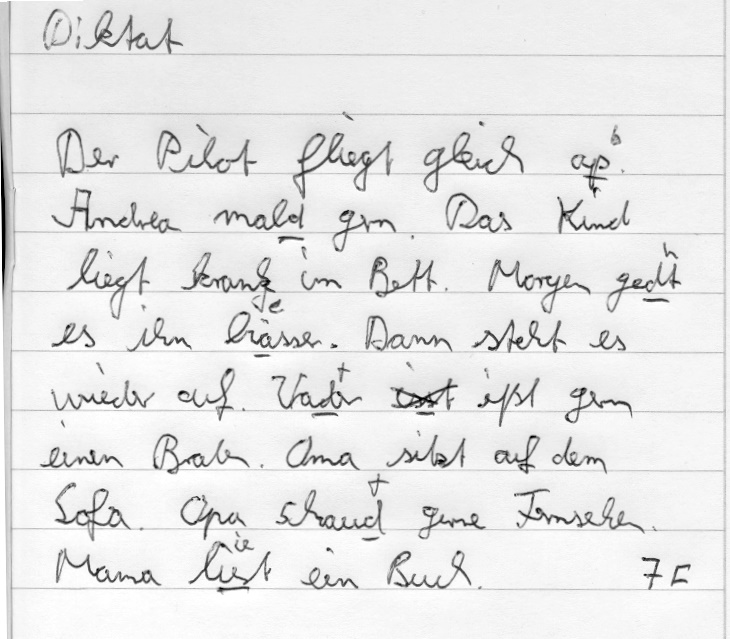 Diktat
Der Pilot fliegt gleich ap b.
Andrea mald gern. Das Kind
liegt krank im Bett. Morgen gedt h
es ihm bässer. e Dann steht es
wieder auf. Vader t isst ißt gern
einen Braten. Oma sitzt auf dem
Sofa. Opa schaud t gerne Fernsehen.
Mama list ie ein Buch. 7F